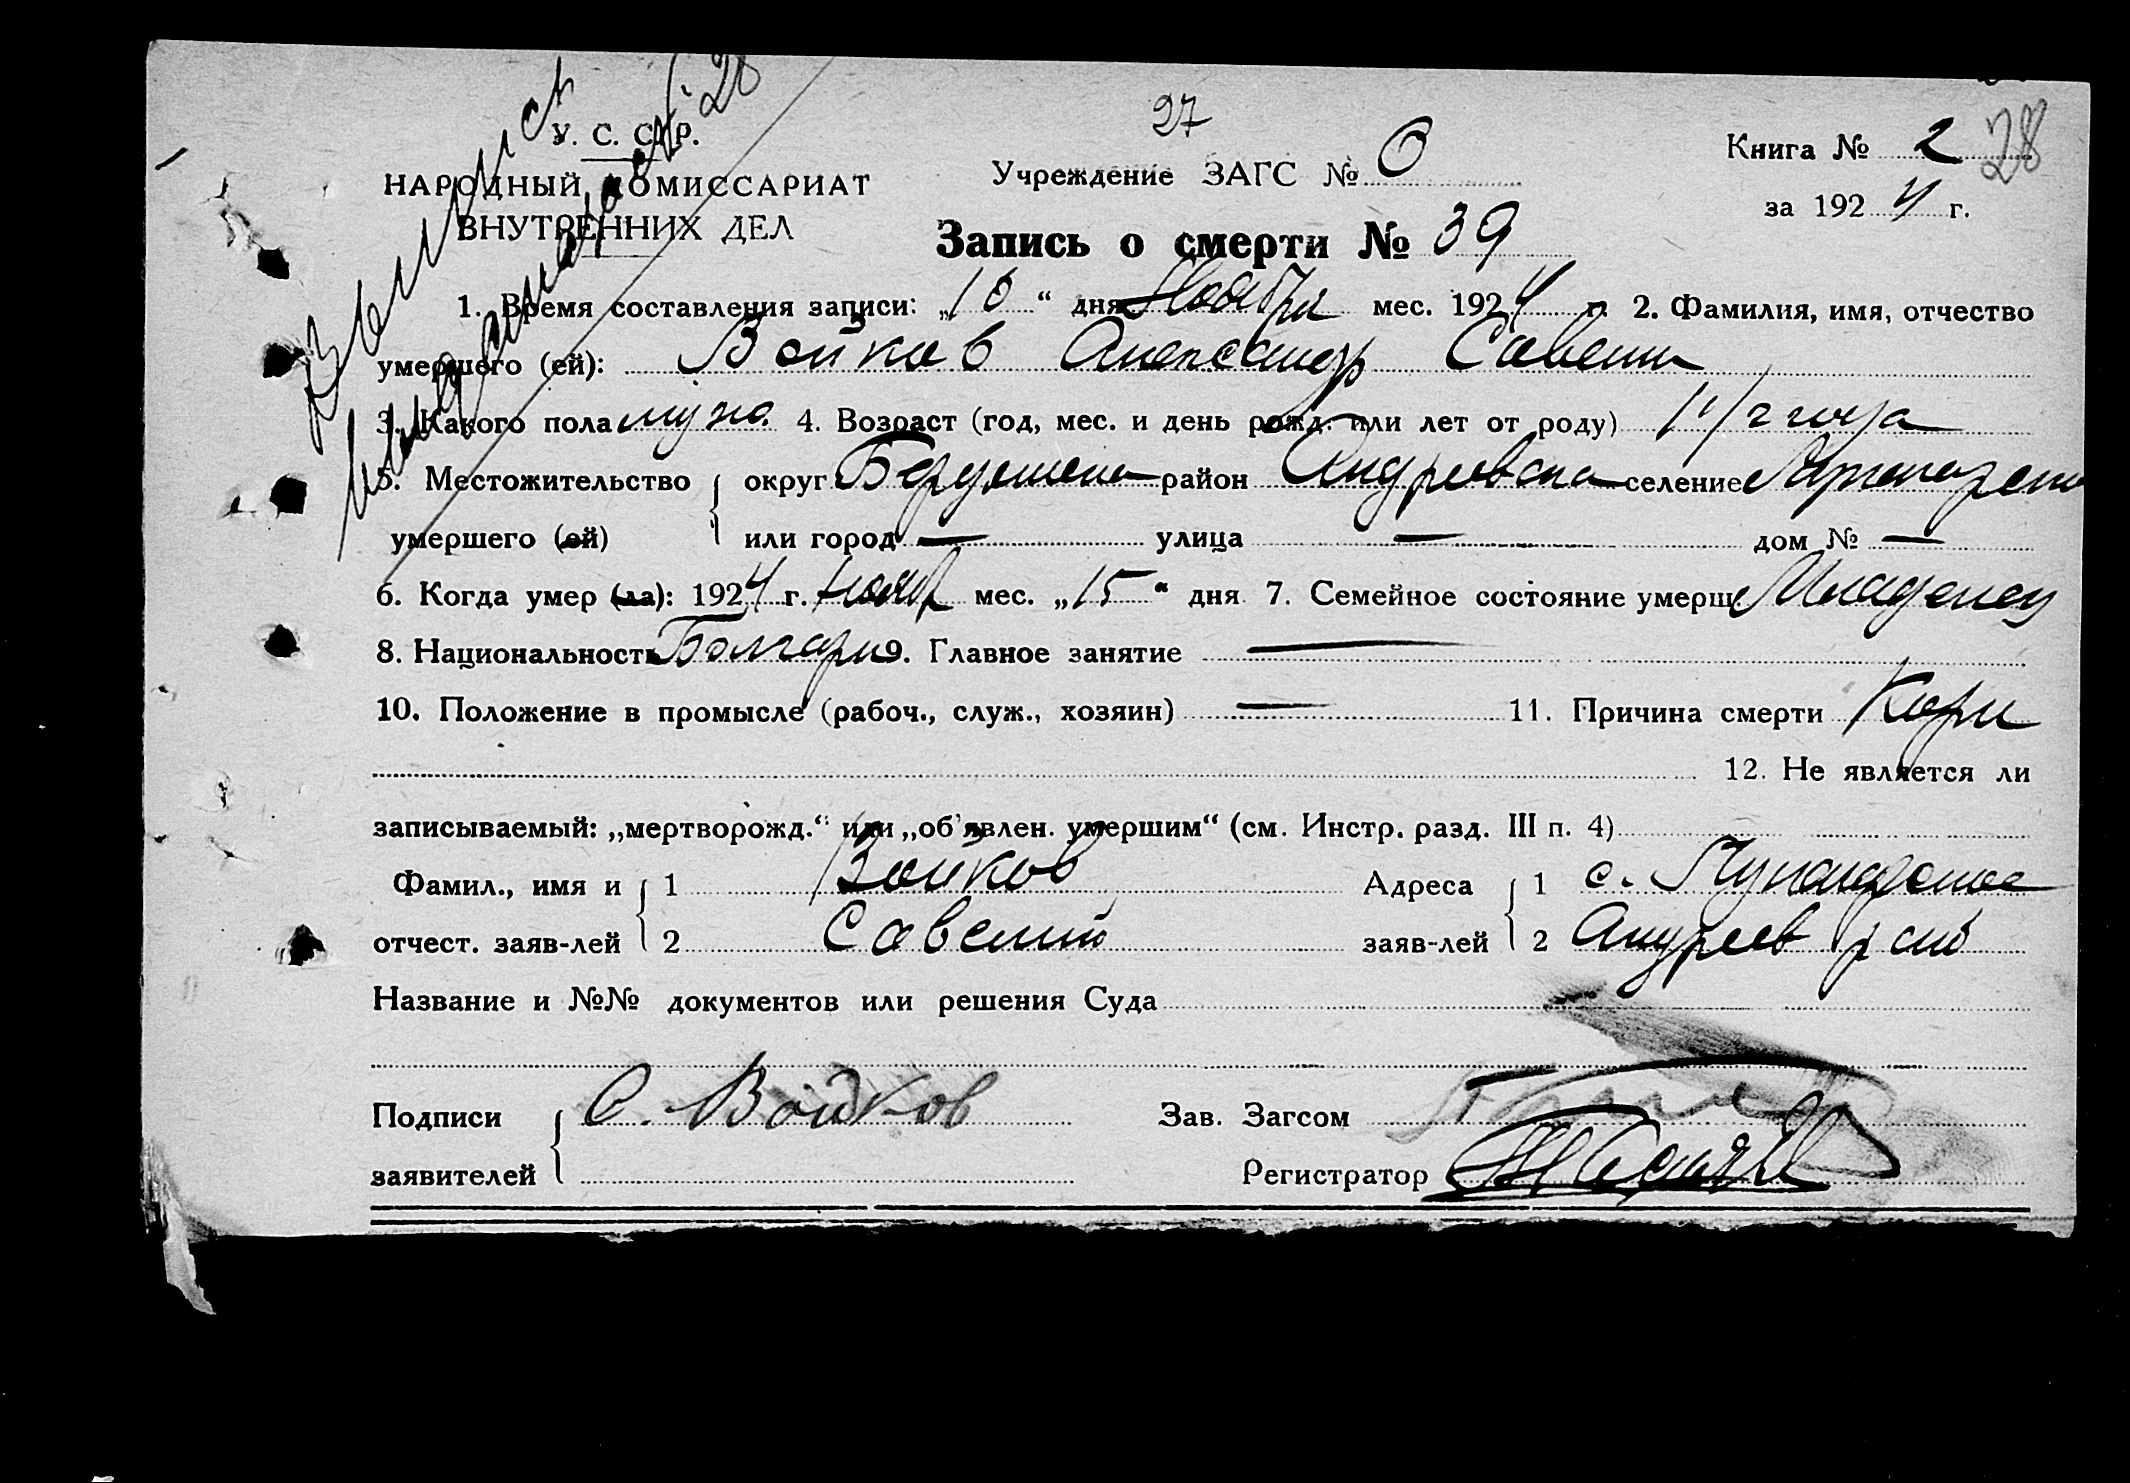 27
28
У. С. С. Р.
НАРОДНЫЙ КОМИССАРИАТ
ВНУТРЕННИХ ДЕЛ
Учреждение ЗАГС № 6
Книга № 2
за 1924 г.
Запись о смерти № 39
1. Время составления записи: „16“ дня Ноября мес. 1924 г. 2. Фамилия, имя, отчество
умершего (ей): Войков Александр Савелий
3. Какого пола муж. 4. Возраст (год, мес. и день рожд. или лет от роду) 1 1/2 года
5. Местожительство округ район Андреевска селение
умершего (ей) или город — улица — дом № —
6. Когда умер (ла): 1924 г. нояб мес. „15“ дня 7. Семейное состояние умерш. Младенец
8. Национальность Болгари 9. Главное занятие —
10. Положение в промысле (рабоч., служ., хозяин) — 11. Причина смерти Кори
12. Не является ли
записываемый: „мертворожд.“ или „об'явлен. умершим“ (см. Инстр. разд. III п. 4)
Фамил., имя и 1 Войков Адреса 1 с.
отчест. заяв-лей 2 Савелий заяв-лей 2 Андреев р
Название и №№ документов или решения Суда
Подписи С. Войков Зав. Загсом
заявителей Регистратор